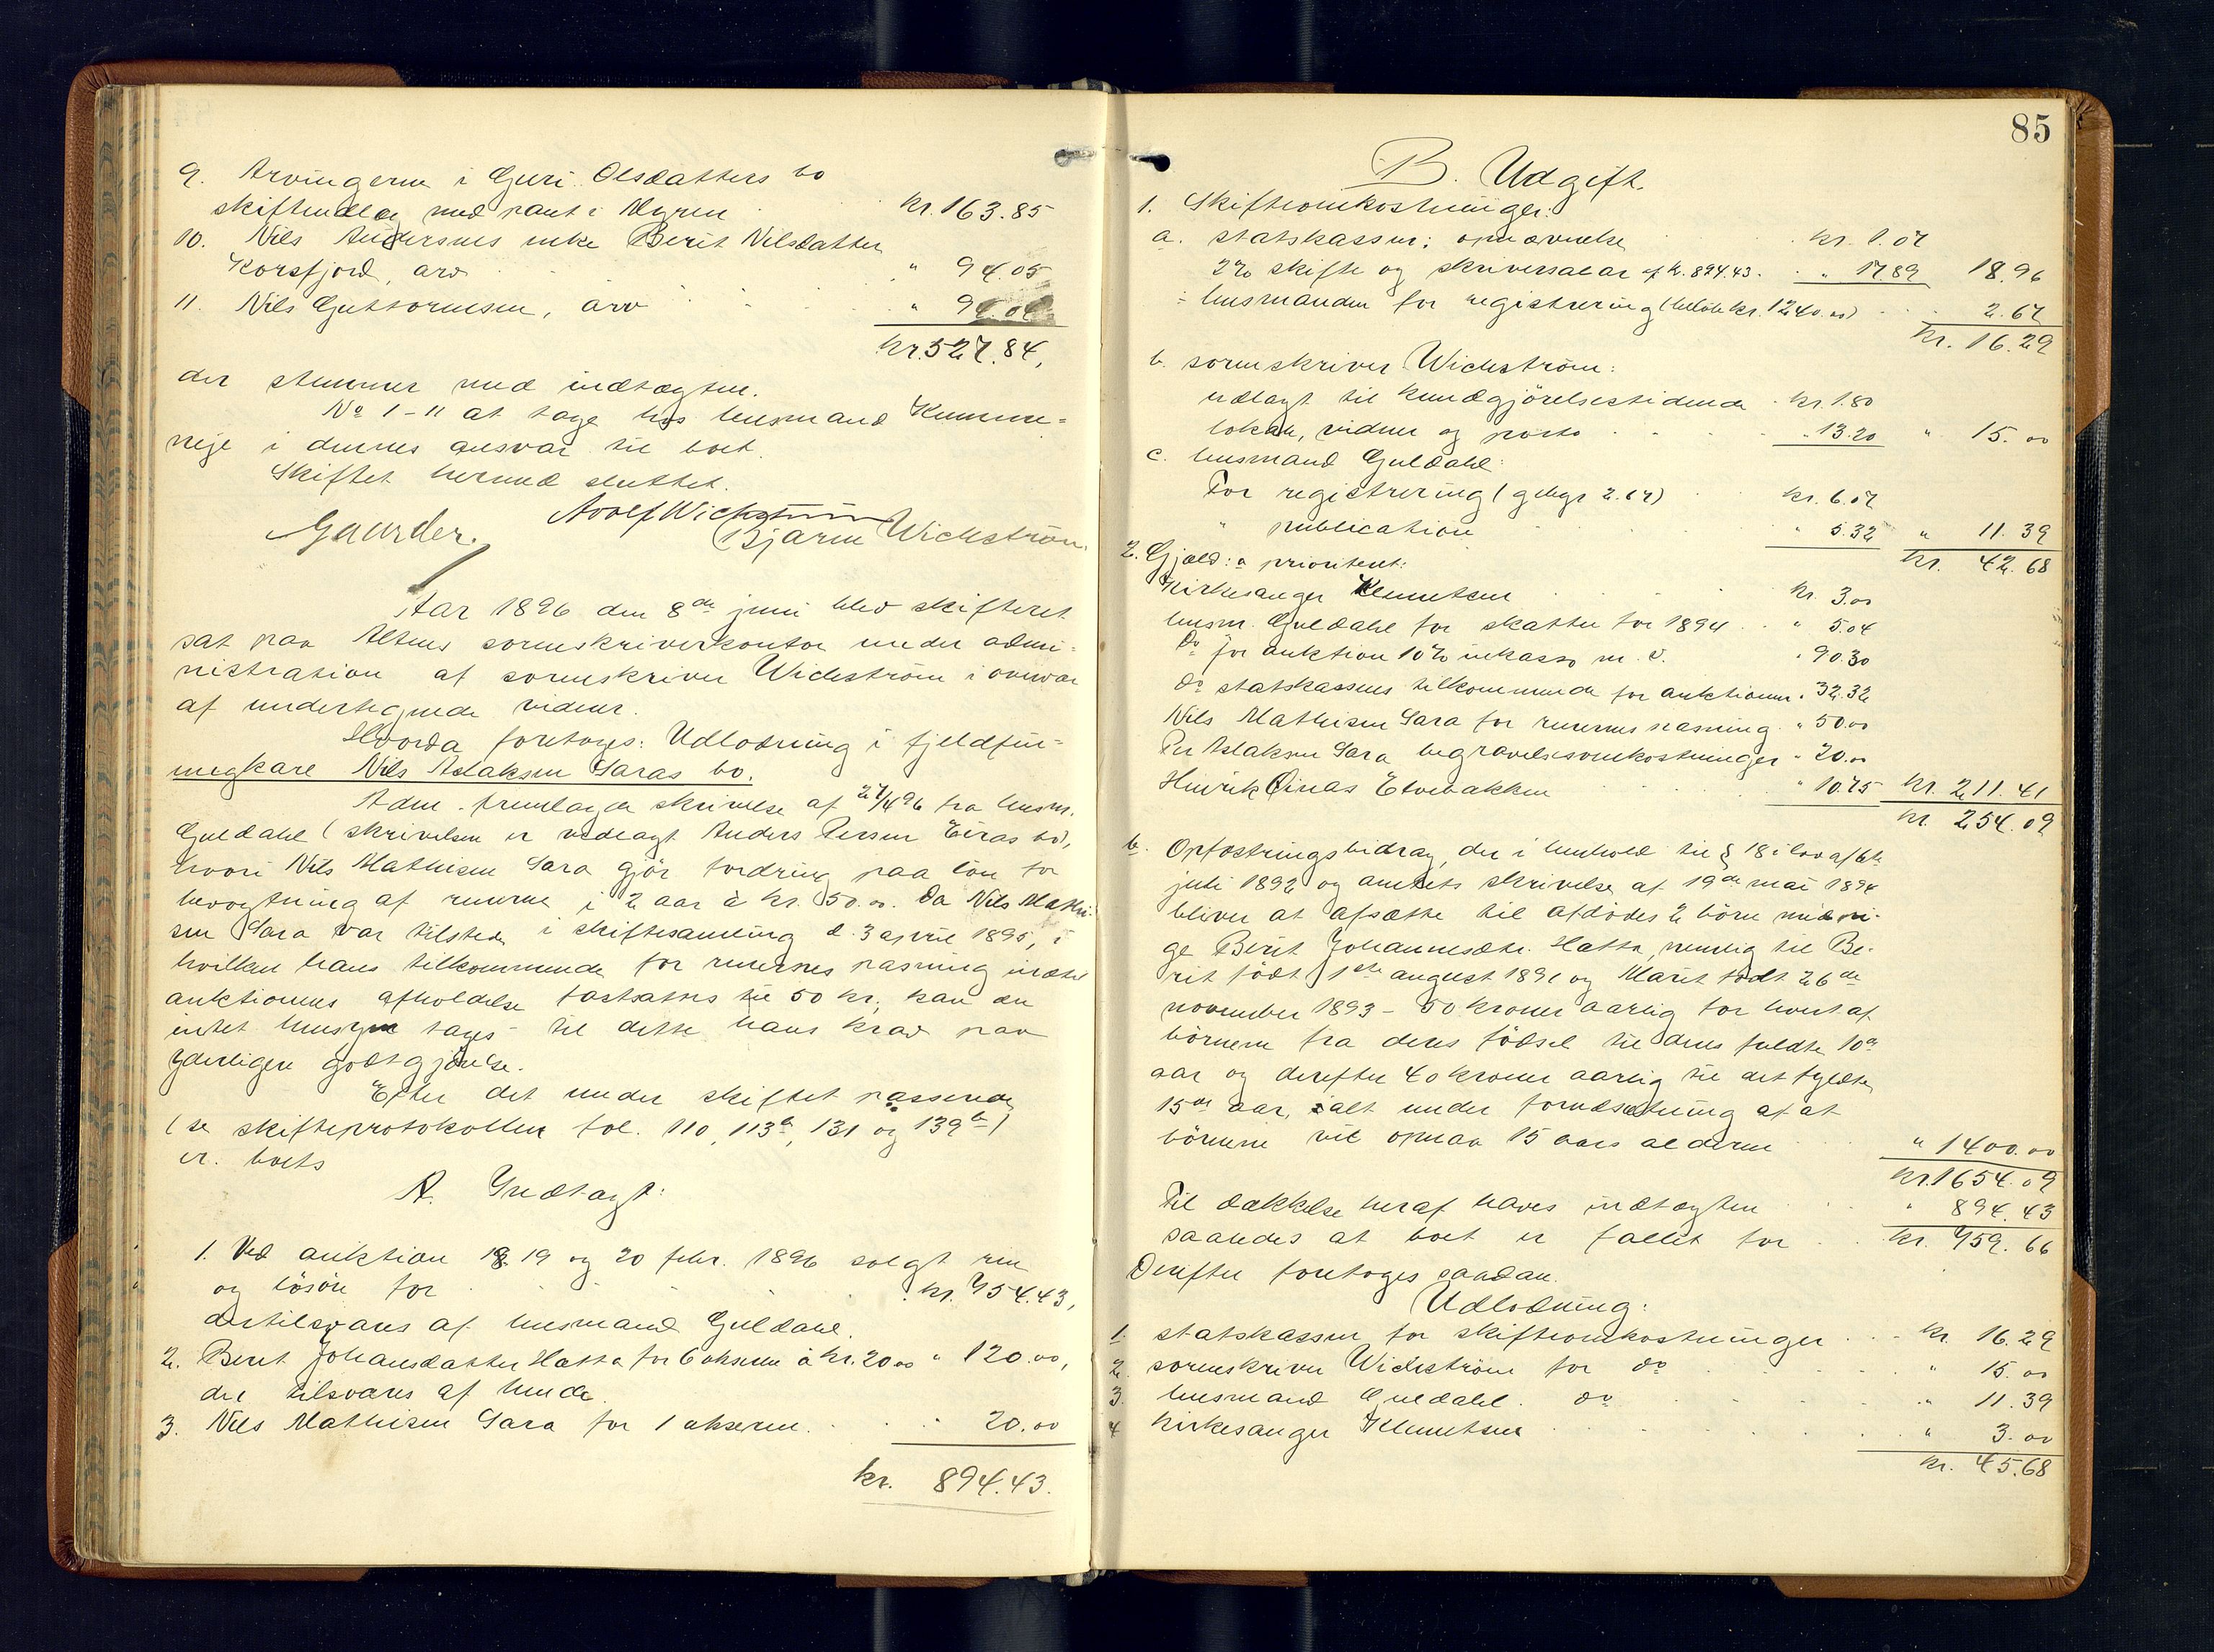 9. Arvingerne i Guri Olsdatters bo
skifteudlæg med pant i Myren kr. 163.85
10. Nils Andersens enke Berit Nilsdatter
Korsfjord, arv " 94.05
11. Nils Guttormsen, arv " 94.04
kr. 527.84,
der stemmer med indtægten.
No 1-11 at tage hos lensmand Kemme=
neje i dennes ansvar til boet.
Skiftet hermed sluttet.
Gaarder. Adolf Wichstrøm Bjarne Wichstrøm.
Aar 1896 den 8de juni blev skifteret
sat paa Altens sorenskriverkontor under admi=
nistration af sorenskriver Wichström i overvær
af undertegnede vidner.
Hvorda foretoges: Udlodning i fjeldfin=
megkare Nils Aslaksen Saras bo.
Adm. fremlagde skrivelse af 27/4 96 fra lensm.
Guldahl (skrivelsen er vedlagt Anders Persen Eiras bo),
hvori Nils Mathisen Sara gjör fordring paa lön for
bevogtning af renerne i 2 aar à kr. 50.00. Da Nils Mathi-
sen Sara var tilstede i skiftesamling d. 3 april 1895, i
hvilken hans tilkommende for renernes pasning indtil
auktionens afholdelse fastsattes til 50 kr., kan der
intet hensyn tages til dette hans krav paa
yderligere godtgjörelse.
Efter det under skiftet passerede
(se skifteprotokollen fol. 110, 113b, 131 og 139b)
er boets
A. Indtægt:
1. Ved auktion 18 19 og 20 febr. 1896 solgt ren
og lösöre for kr. 754.43,
der tilsvares af lensmand Guldahl.
2. Berit Johansdatter Hatta for 6 oksern à kr. 20.00 " 120.00,
der tilsvares af hende.
3. Nils Mathisen Sara for 1 okseren 20.00
kr. 894.43.
85
B. Udgift.
1. Skifteomkostninger:
a. statskassen: opnævnelse kr. 1.07
2% skifte og skriversalær af kr. 894.43. " 17.89 18.96
÷ lensmanden for registrering (beløb kr. 1240.00) 2.67
kr. 16.29
b. sorenskriver Wichström:
udlagt til kundgjörelsestidende kr. 1.80
lokale, vidner og porto " 13.20 " 15.00
c. lensmand Guldahl:
For registrering (gebyr 2.67) kr. 6.07
" publication " 5.32 " 11.39
kr. 42.68
2. Gjæld: a prioritert:
Kirkesanger Klemetsen kr. 3.00
lensm. Guldahl for skatter for 1894 " 5.04
Do for auktion 10% inkasso m. v. " 90.30
Do statskassens tilkommende for auktionen " 32.32
Nils Mathisen Sara for renernes pasning " 50.00
Per Aslaksen Sara begravelsesomkostninger " 20.00
Henrik Oinas Elvebakken " 10.75 kr. 211.41
kr. 254.09
b. Opfostringsbidrag, der i henhold til § 18 i lov af 6te
juli 1892 og amtets skrivelse af 19de mai 1894
bliver at afsætte til afdödes 2 börn med pi-
ge Berit Johannesdtr. Hatta, nemlig til Be-
rit födt 1ste august 1891 og Marit födt 26de
november 1893 - 50 kroner aarlig for hvert af
börnene fra deres födsel til deres fuldte 10de
aar og derefter 40 kroner aarlig til det fyldte
15de aar, ialt under forudsætning af at
börnene vil opnaa 15 aars alderen " 1400.00
kr. 1654.09
Til dækkelse heraf haves indtægten " 894.43
saaledes at boet er fallit for kr. 759.66
Derefter foretoges saadan
Udlodning:
1. statskassen for skifteomkostninger kr. 16.29
2. sorenskriver Wichström for do " 15.00
3. lensmand Guldahl. do " 11.39
4 kirkesanger Klemetsen " 3.00
kr. 45.68